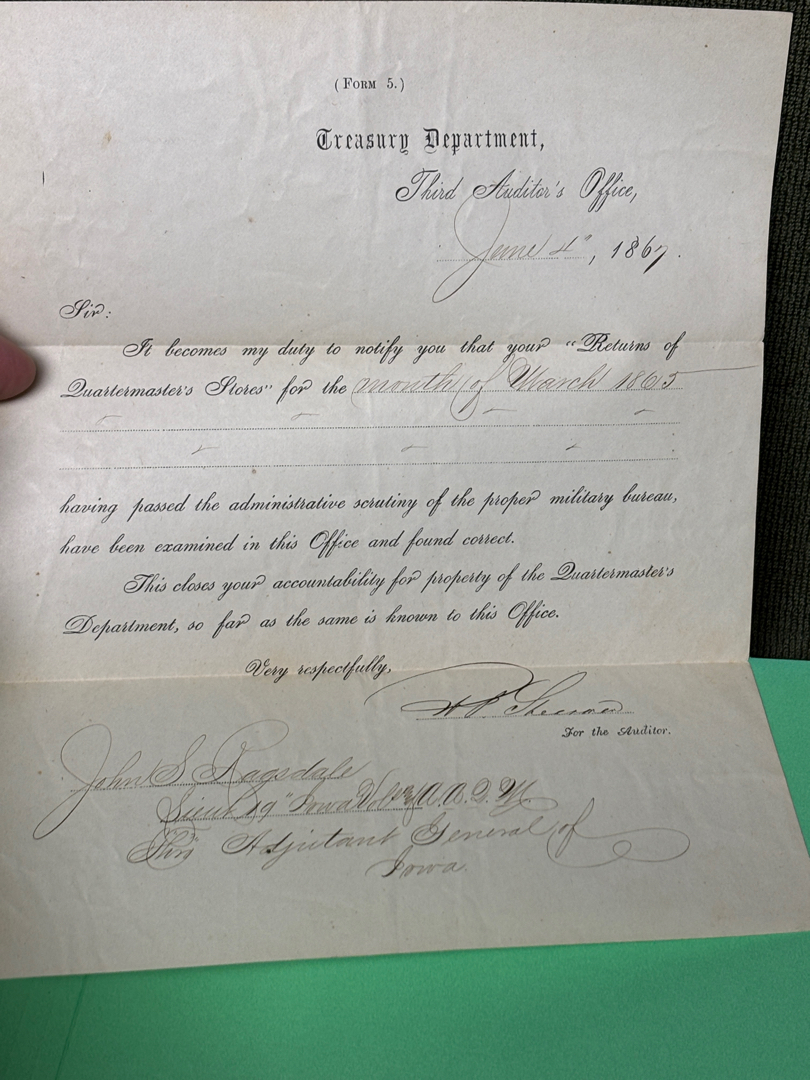 (Form 5.)
Treasury Department,
Third Auditor's Office,
June 4", 1867.
Sir:
It becomes my duty to notify you that your "Returns of
Quartermaster's Stores" for the month of March 1865
having passed the administrative scrutiny of the proper military bureau,
have been examined in this Office and found correct.
This closes your accountability for property of the Quartermaster's
Department, so far as the same is known to this Office.
Very respectfully,
Sherman
For the Auditor.
John S Ragsdale
Lieut 19" Iowa Vols A.A.Q.M.
Thro Adjutant General of
Iowa.